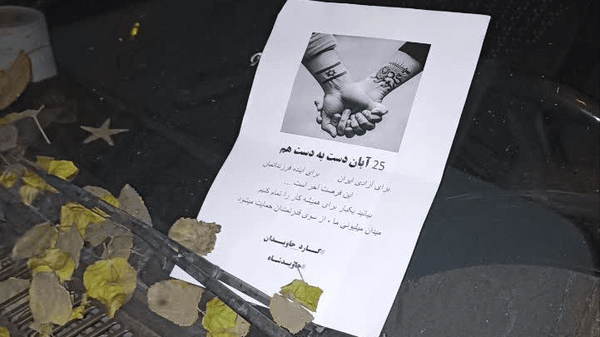 25 آبان دست به دست هم
برای آزادی ایران برای آینده فرزندانمان
این فرصت آخر است ...
بیائید یکبار برای همیشه کار را تمام کنیم
میدان میلیونی ما ، از سوی قدرتمندان حمایت میشود
#گارد_جاویدان
#جاویدشاه